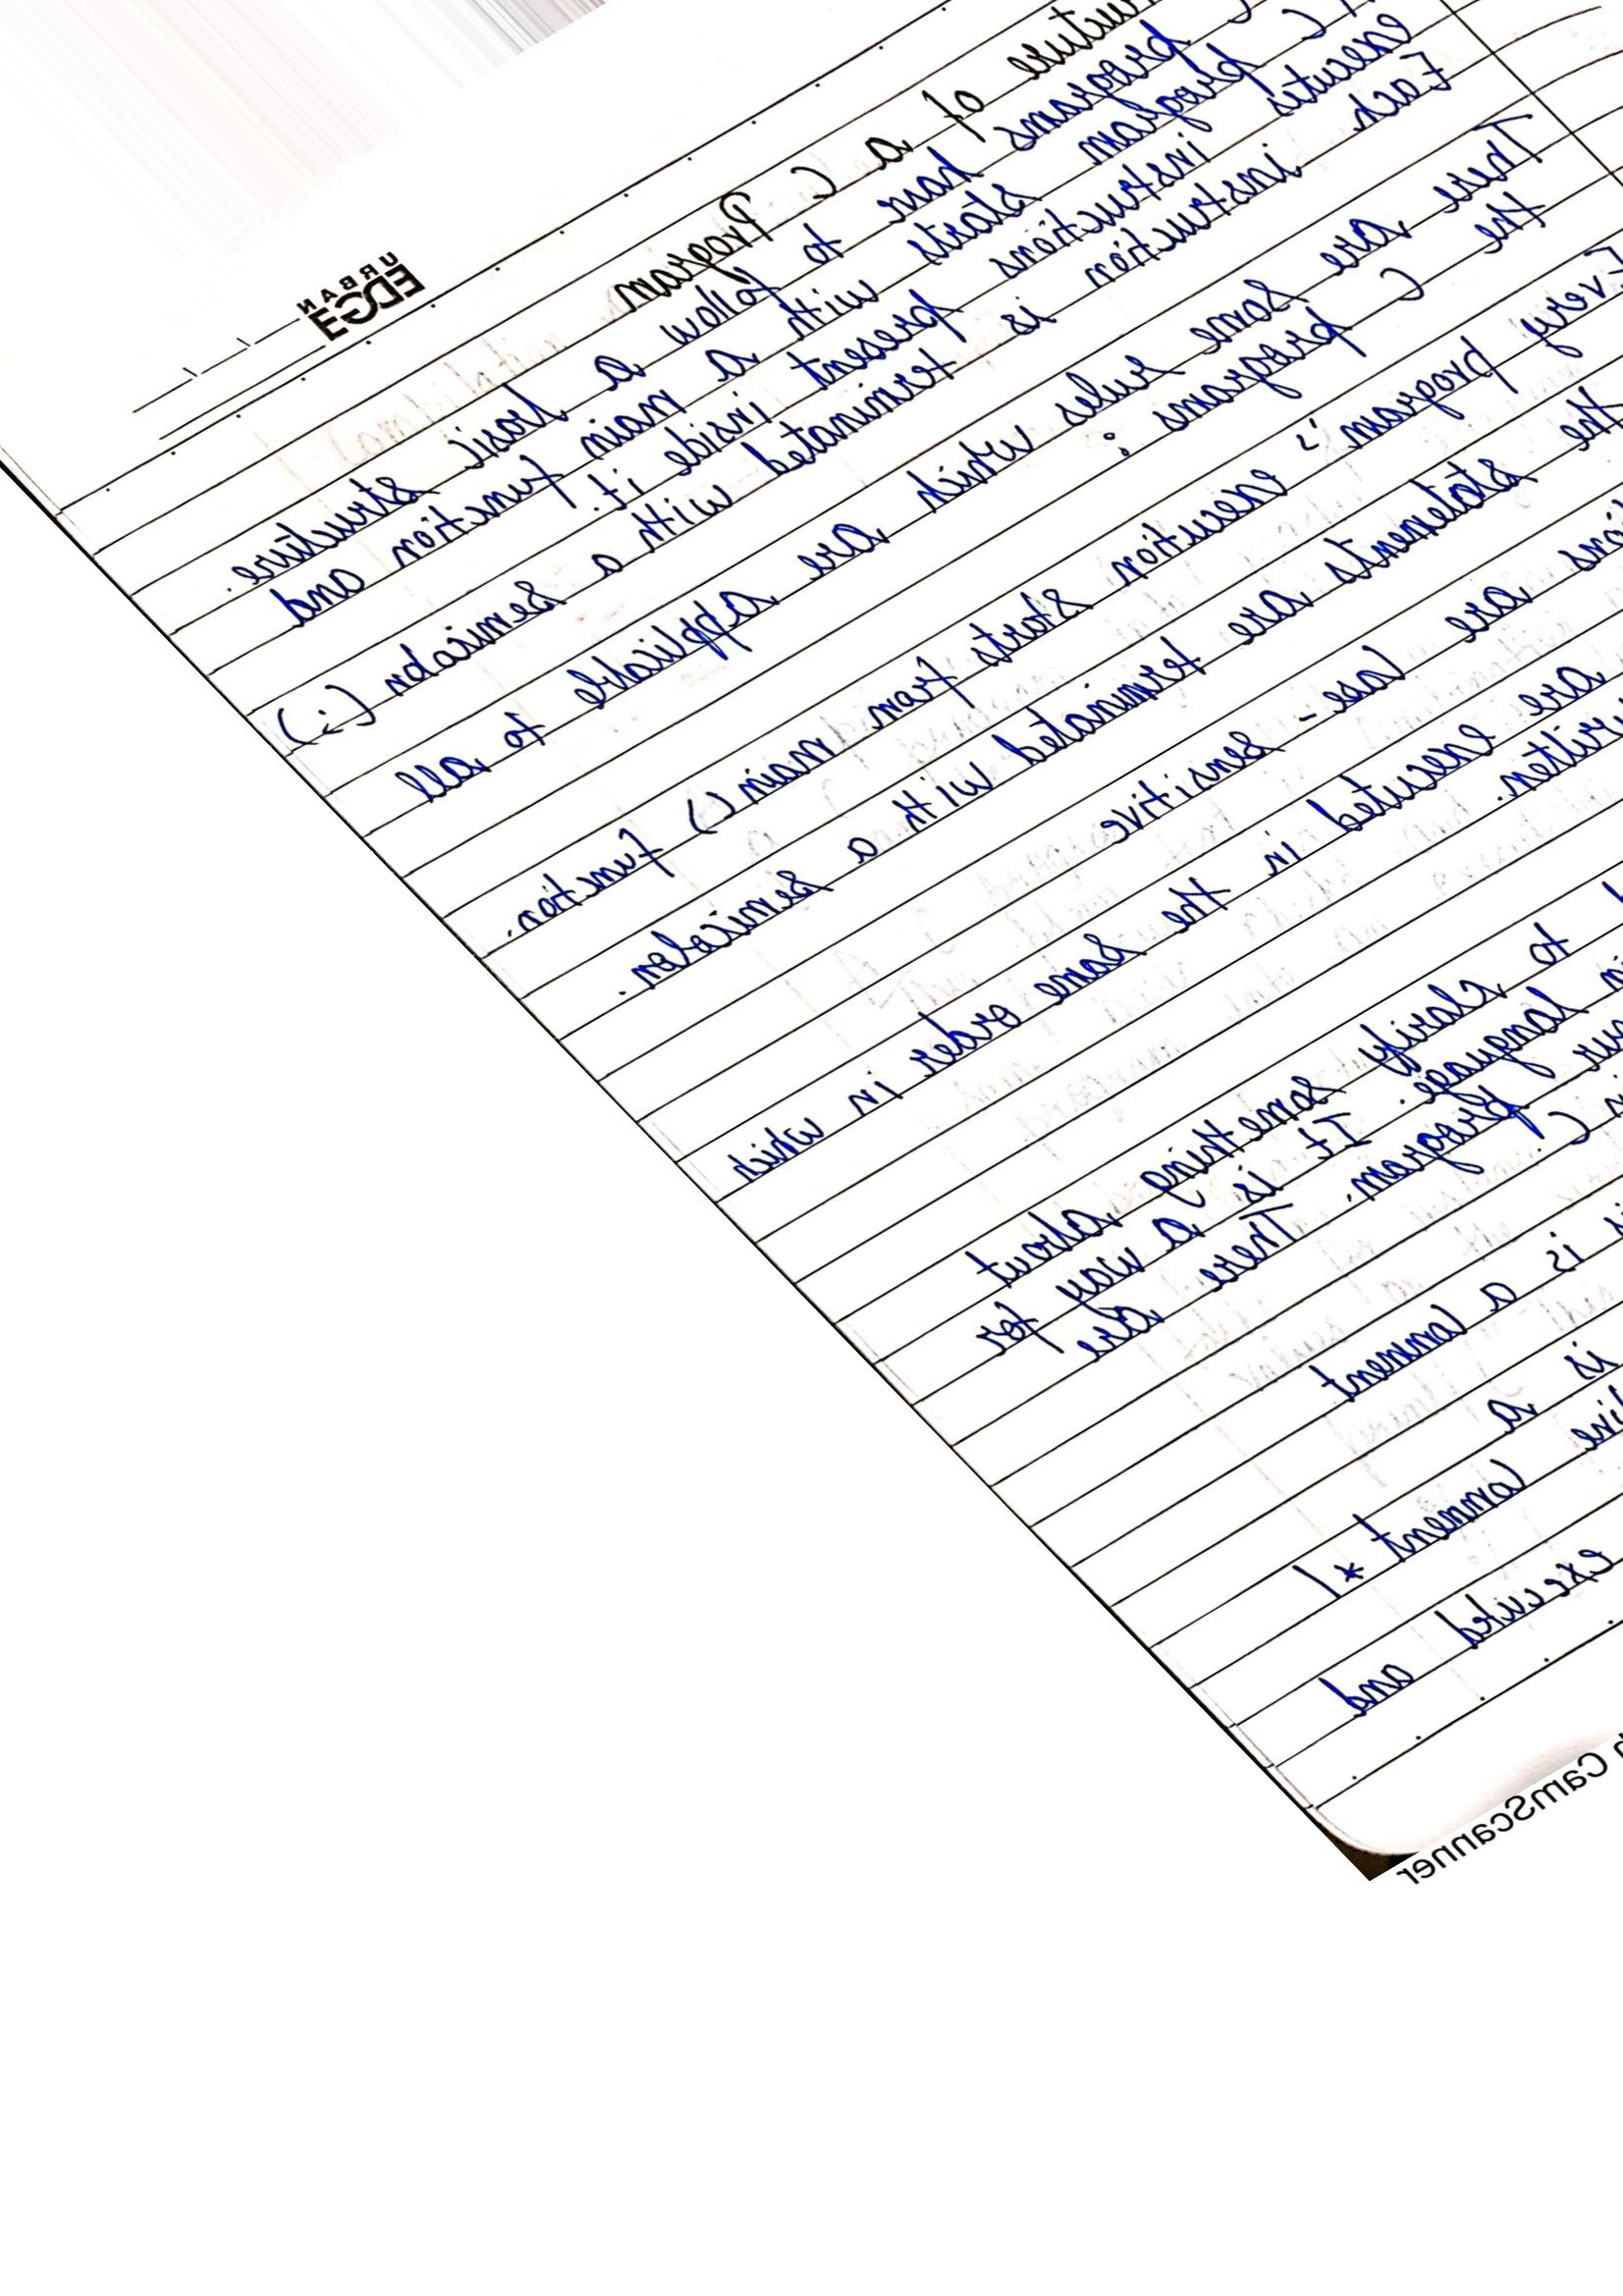 URBAN
EDGE
of a C Program
C programs have to follow a basic structure.
C program starts with a main function and
executes instructions present inside it.
Each instruction is terminated with a semicolon (;)
There are some rules which are applicable to all
the C programs :
Every program's execution starts from main() function.
the statements are terminated with a semicolon.
are case-sensitive
are executed in the same order in which
to clarify something about
language. It is a way for
C program. There are
is a comment
is a
comment */
executed and
CamScanner